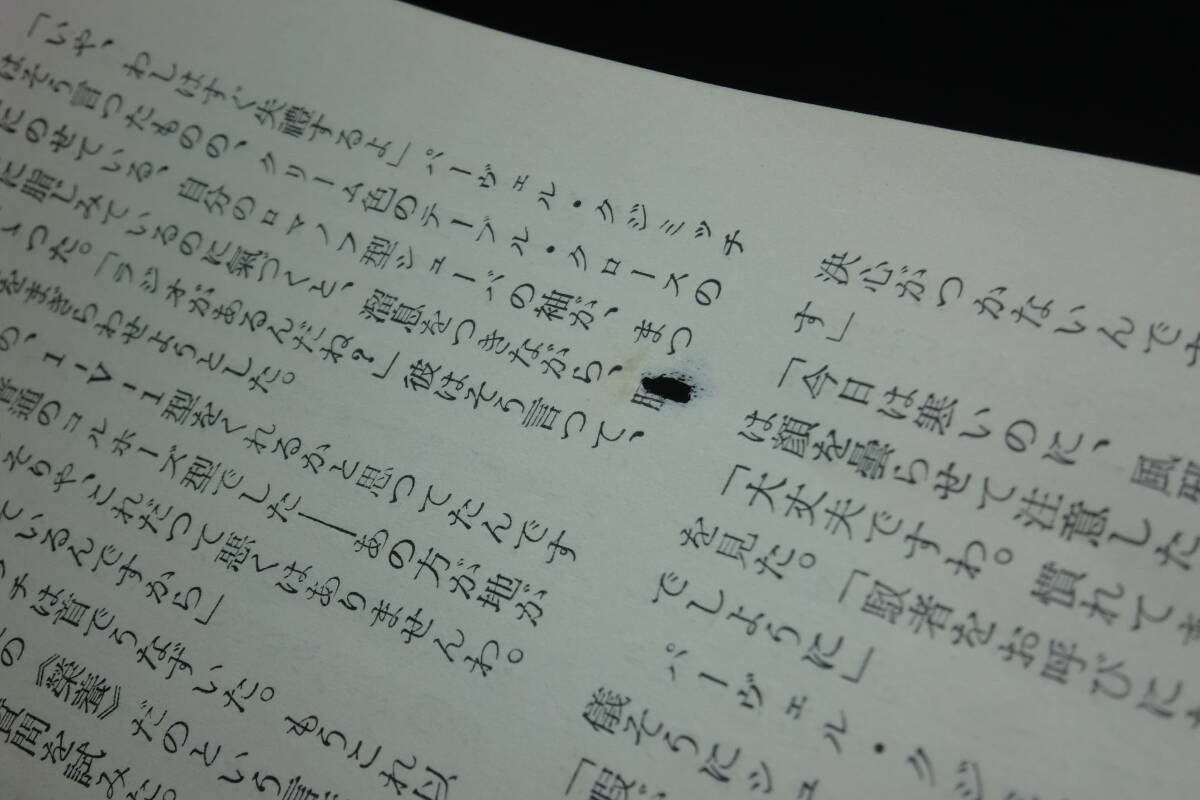 「いや、わしはすぐ失禮するよ」パーヴェル・クジミッチ
はそう言つたものの、クリーム色のテーブル・クロースの
にのせている、自分のロマノフ型シューバの袖が、まつ
に脂じみているのに氣づくと、溜息をつきながら、
いつた。「ラジオがあるんだね?」彼はそう言つて、
をまぎらわせようとした。
の、1―V―1型をくれるかと思つてたんです
普通のコルホーズ型でした――あの方が地が
そりや、これだつて惡くはありませんわ。
ているんですから」
ッチは首でうなずいた。もうこれ以
の《榮養》だのという言
質問を試みた。
決心がつかないんです
す」
「今日は寒いのに、風邪
は顏を曇らせて注意した
「大丈夫ですわ。慣れてま
を見た。「馭者をお呼びに
でしように」
パーヴェル・クジ
儀そうにシュ
「暇